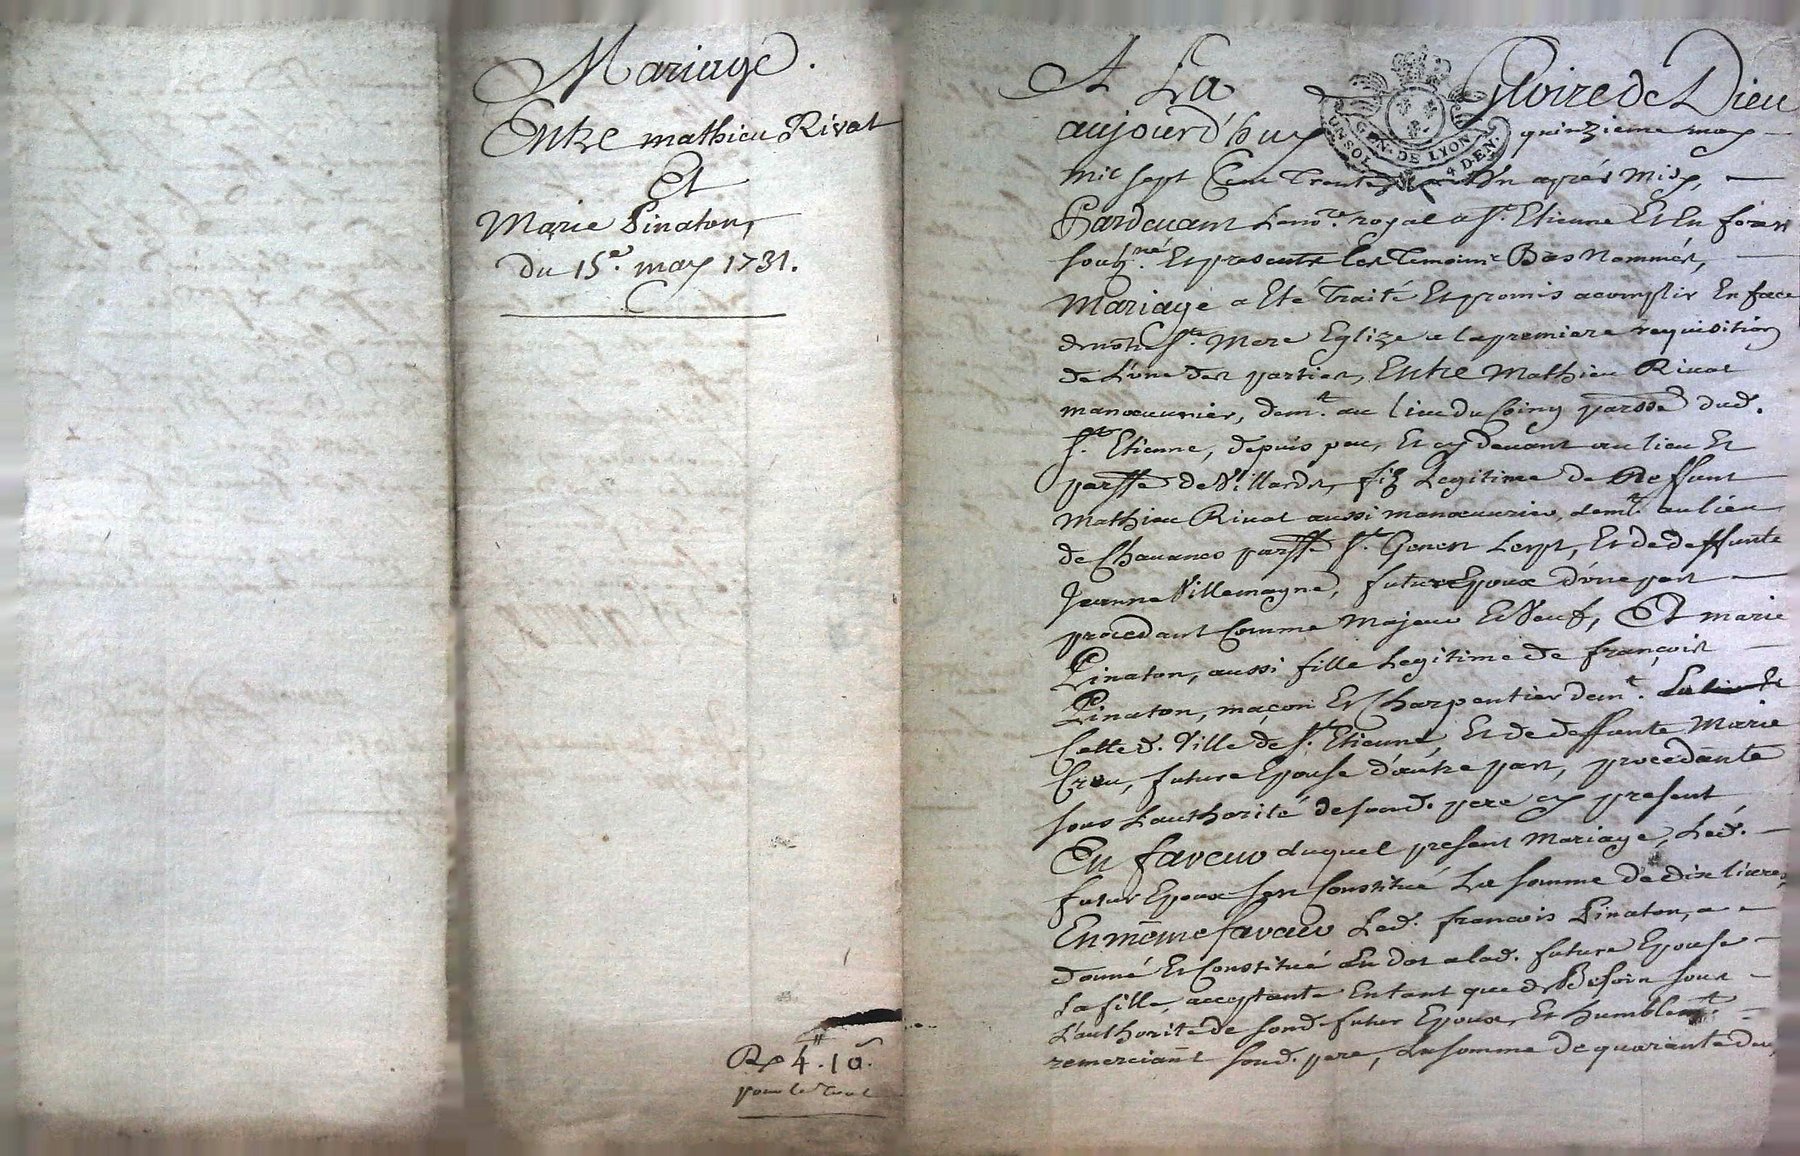 Mariage.
Entre mathieu Rivat
Et
Marie Pinaton,
Du 15e. may 1731.
Rx 4ᵗᵗ. 10ˢ.
pour le tout
A La Gloire de Dieu
aujourd'huy quinzieme may
GEN. DE LYON
UN SOL 4 DEN.
mil sept Cent Trente Un après Midy,
Pardevant Le nore. royal a St. Etienne Et En forest
soubzné. Et presents les Temoins Bas Nommés,
Mariage a Eté Traité Et promis acomplir En face
de notre Ste. Mere Eglize a la premiere requisition
de L'une des parties, Entre Mathieu Rivat
manoeuvrier, demt. au lieu du Coing parsse dud.
St. Etienne, depuis peu, Et cy devant au lieu Et
parsse de Villards, fiz Legitime de deffunt
Mathieu Rivat aussi manoeuvrier, demt. au lieu
de Chavanes parsse St. Genest Lerpt, Et de deffunte
Jeanne Villemagne, futur Epoux d'une part
procedant Comme Majeur Et Veuf, Et marie
Pinaton, aussi fille Legitime de françois
Pinaton, maçon Et Charpentier demt.
Cette d. Ville de St. Etienne, Et de deffunte Marie
future Epouse d'autre part, procedante
sous L'authorité de sond. pere cy present
En faveur duquel present Mariage, Led.
futur Epoux s'est Constitué La somme de dix livres,
En même faveur Led. francois Pinaton, a
donné Et Constitué En dot a lad. future Epouse
La fille, acceptante Entant que de Besoin sous
L'authorité de sond. futur Epoux, Et humblemt.
remerciant sond. pere, La somme de quarante deux